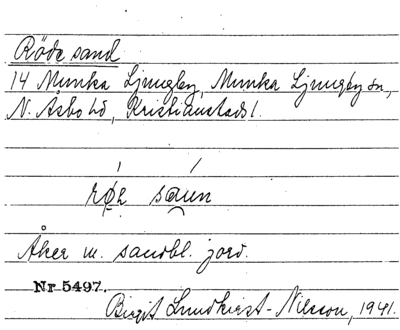 Röde sand
14 Munka Ljungby, Munka Ljungby sn,
N. Åsbo hd, Kristianstads l.
Åker m. sandbl. jord.
Nr 5497.
Birgit Lundkvist-Nilsson, 1941.